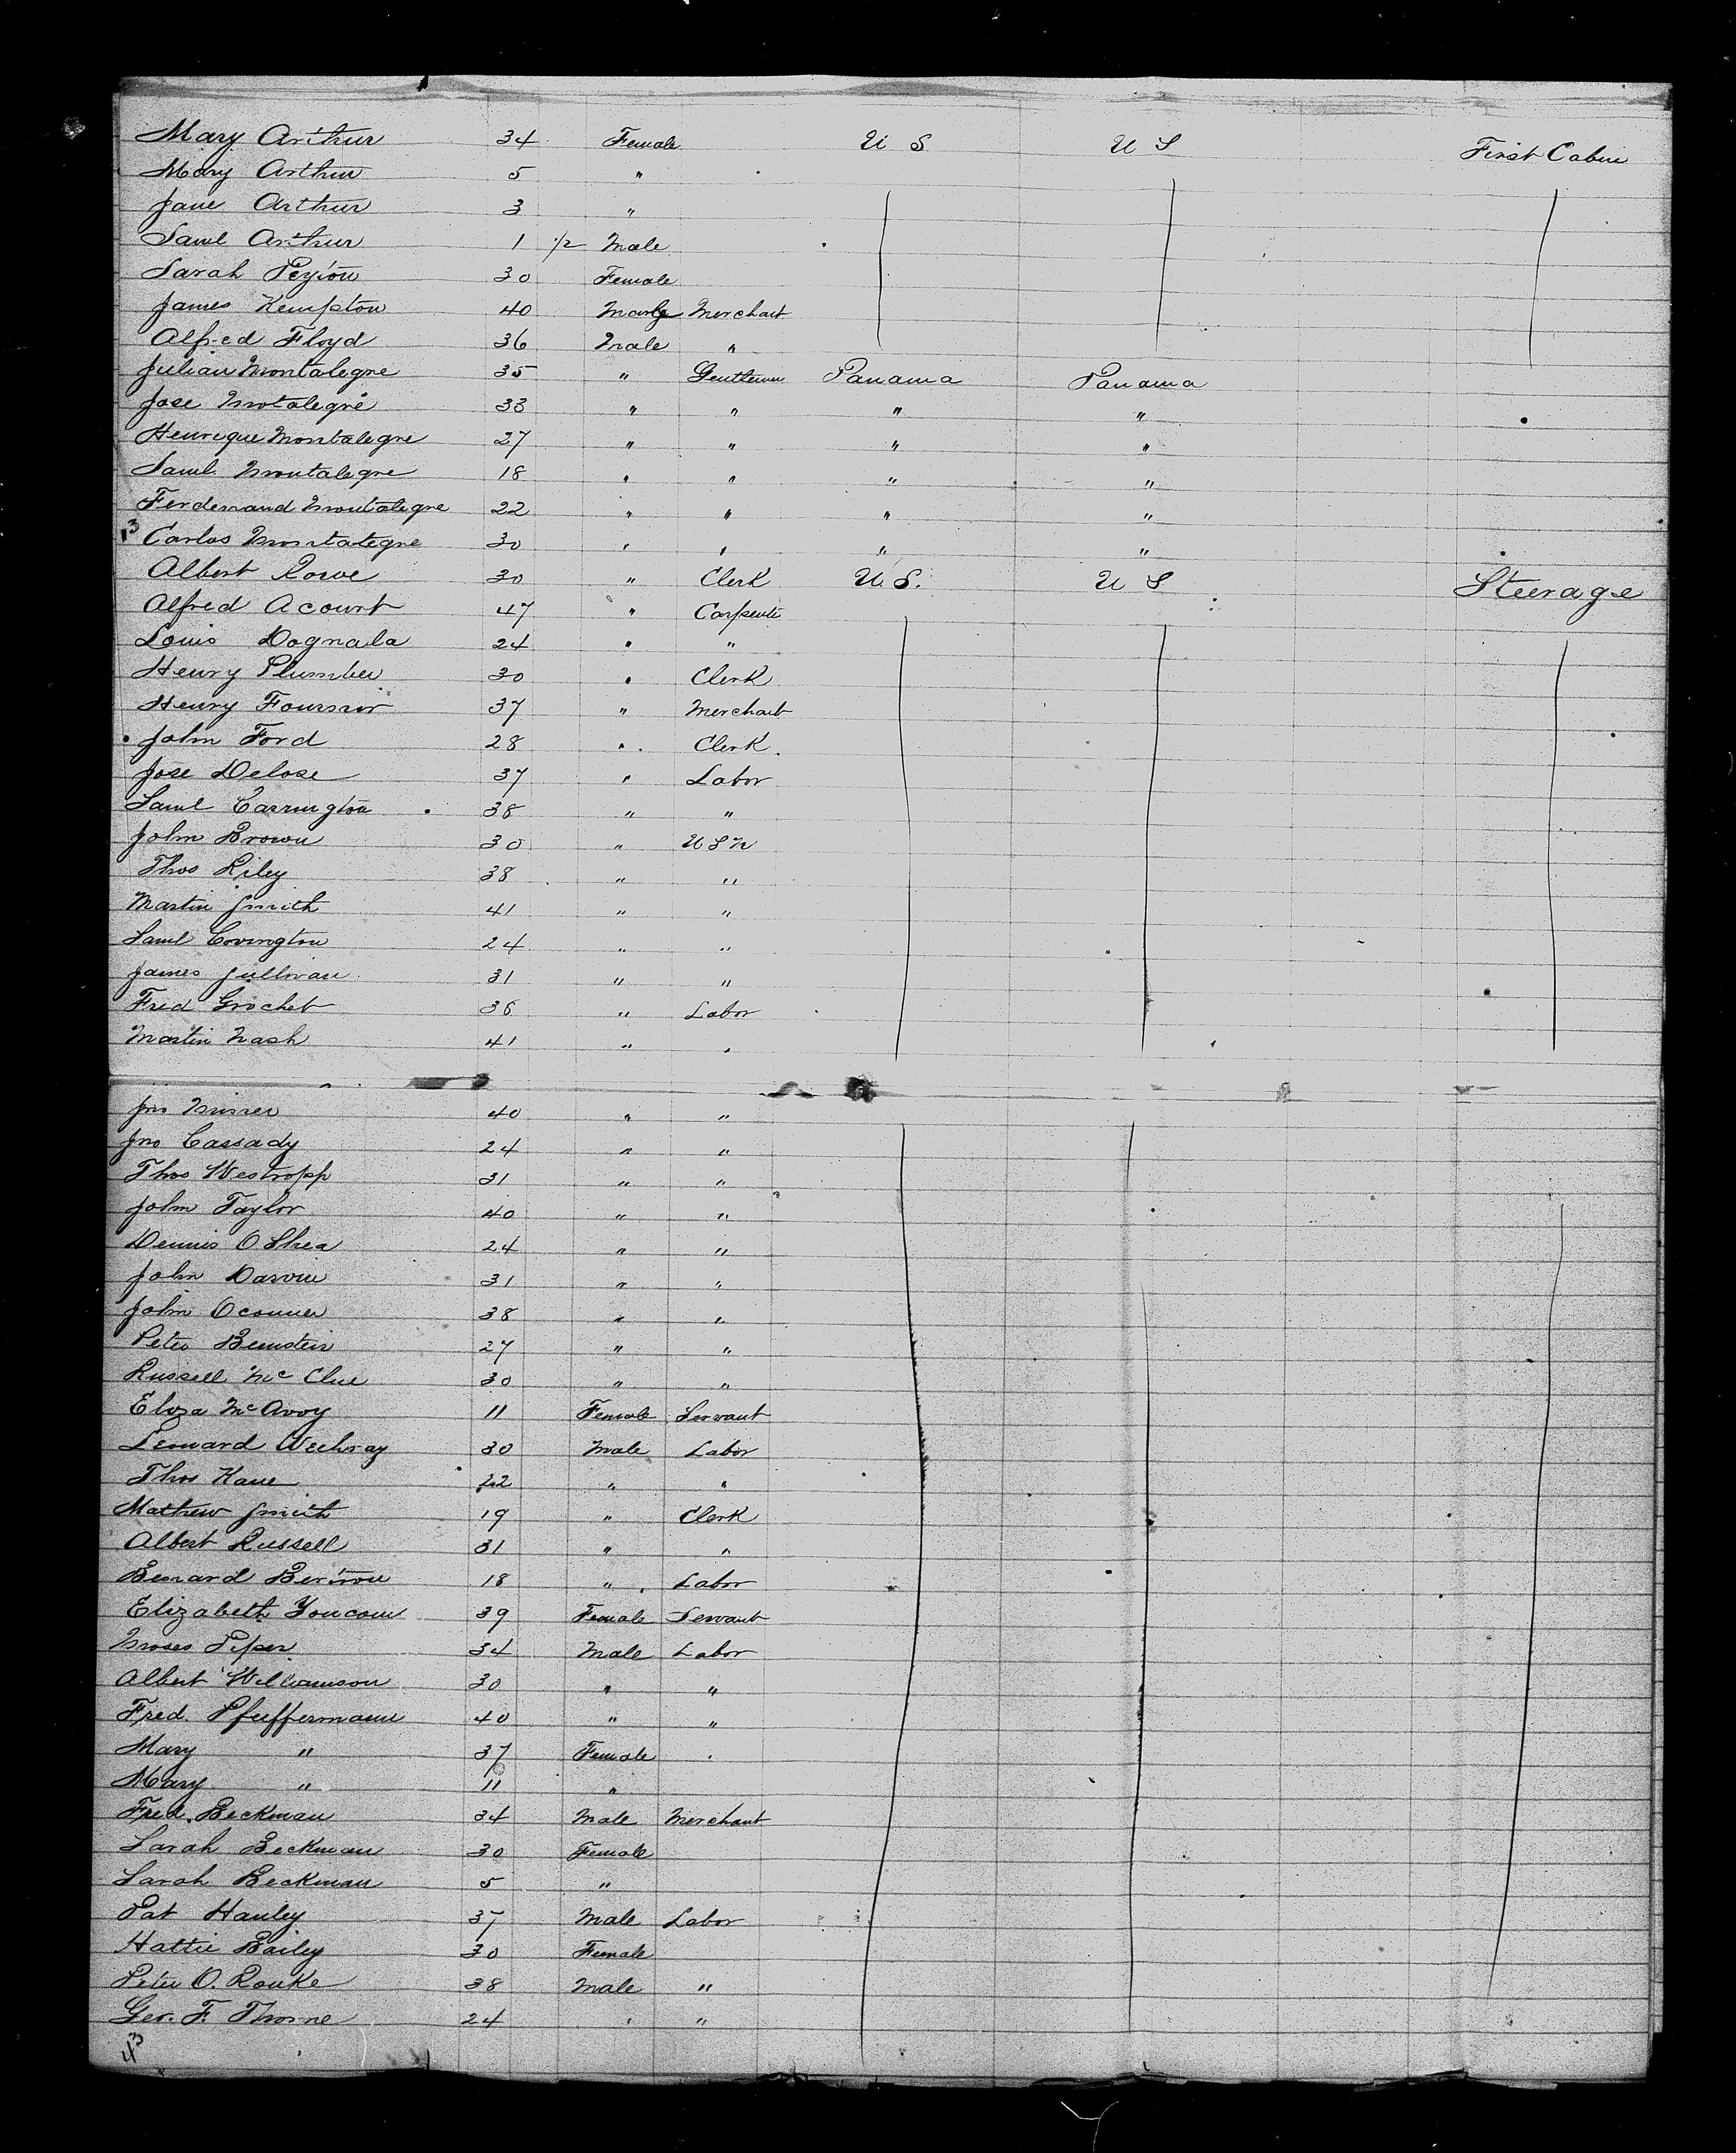 Mary Arthur 34 Female U S U S First Cabin
Mary Arthur 5 "
Jane Arthur 3 "
Saml Arthur 1 1/2 Male
Sarah Peyton 30 Female
James Kempton 40 Male Merchant
Alfred Floyd 36 Male "
Julian Montalegre 35 " Gentleman Panama Panama
Jose Motalegre 33 " " " "
Henrique Montalegre 27 " " " "
Saml. Montalegre 18 " " " "
Ferdenand Montalegre 22 " " " "
13 Carlos Montalegre 30 " " " "
Albert Rowe 30 " Clerk U.S. U S Steerage
Alfred Acourt 47 " Carpente
Louis Dognala 24 " "
Henry Plumber 30 " Clerk
Henry 37 " Merchant
John Ford 28 " Clerk
Jose Delose 37 " Labor
Saml Carrington 38 " "
John Brown 30 " U S N
Thos Riley 38 " "
Martin Smith 41 " "
Saml Covington 24 " "
James Sullivan 31 " "
Fred Grochet 36 " Labor
Martin Nash 41 " "
Jno 40 " "
Jno Cassady 24 " "
Thos Westropp 31 " "
John Taylor 40 " "
Dennis O Shea 24 " "
John Darvin 31 " "
John Oconner 38 " "
Peter Bernstein 27 " "
Russell Mc Clue 30 " "
Eliza McAvoy 11 Female Servant
Leonard 30 Male Labor
Thos Kane 22 " "
Mathew Smith 19 " Clerk
Albert Russell 31 " "
Bernard 18 " Labor
Elizabeth Youcom 39 Female Servant
Moses Piper 34 Male Labor
Albert Williamson 30 " "
Fred. Pfeffermann 40 " "
Mary " 37 Female
Mary " 11 "
Fred. Beckman 34 Male Merchant
Sarah Beckman 30 Female
Sarah Beckman 5 "
Pat Hanley 37 Male Labor
Hattie Bailey 30 Female
Peter O. Rouke 38 Male "
Geo. F. Thorne 24 " "
43